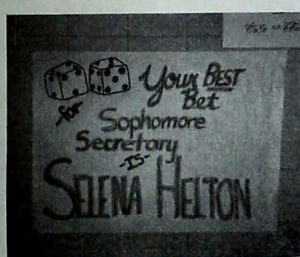 Your BEST
Bet
for
Sophomore
Secretary
-IS-
SELENA HELTON